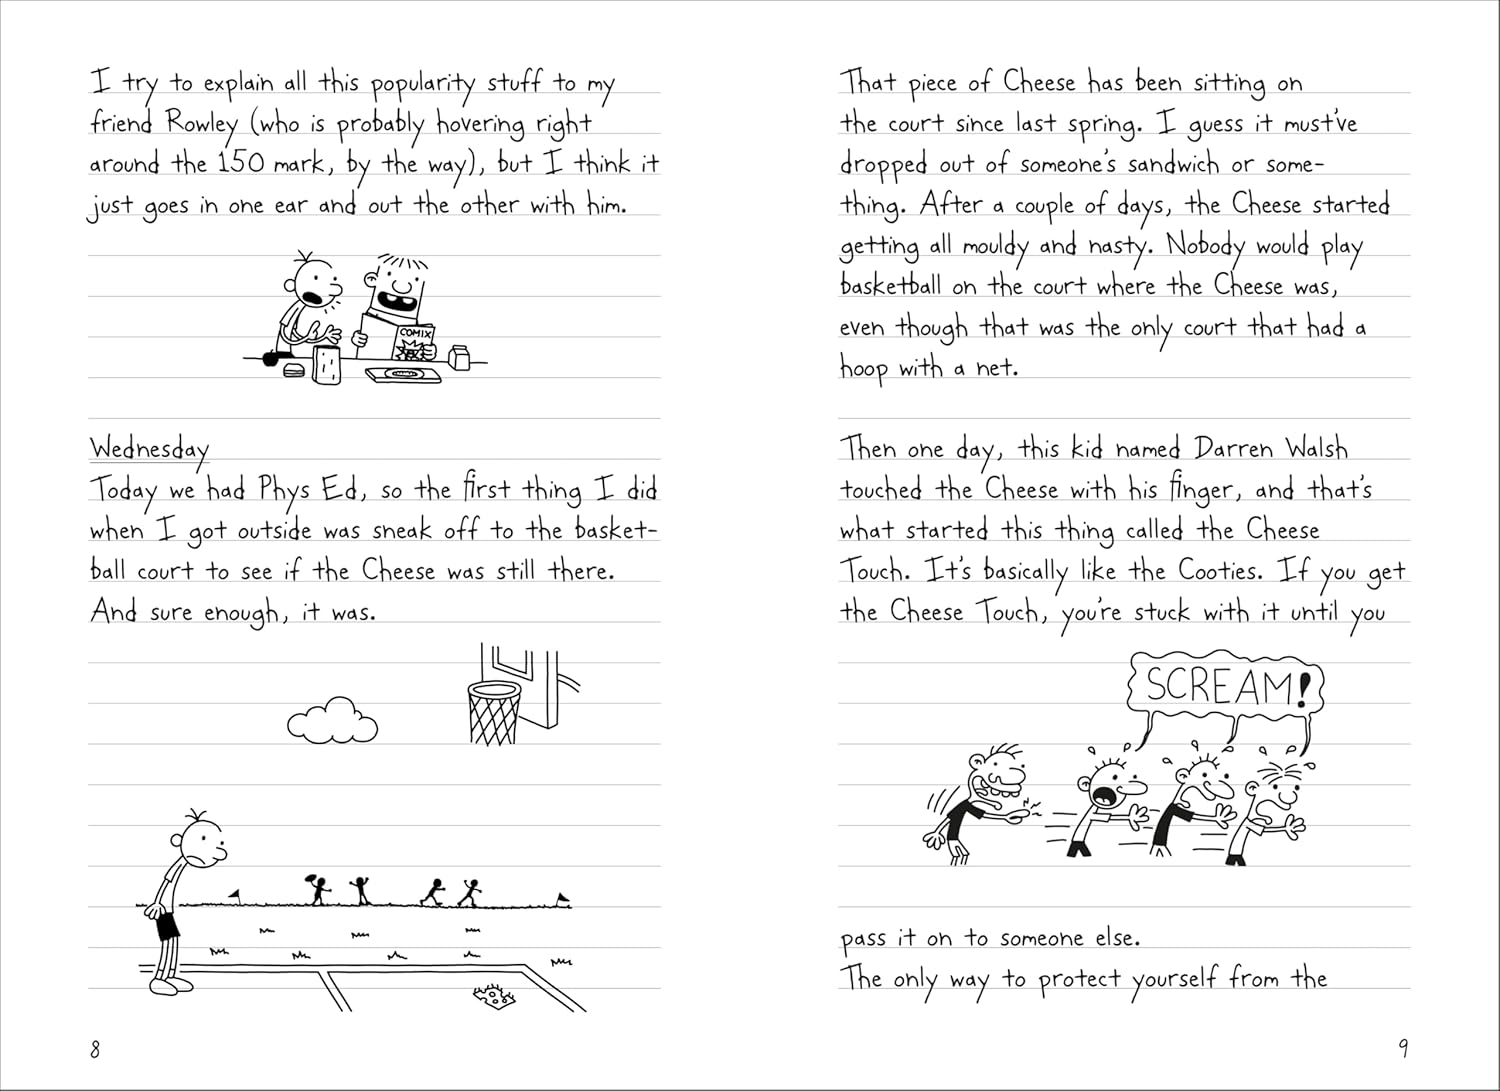 I try to explain all this popularity stuff to my
friend Rowley (who is probably hovering right
around the 150 mark, by the way), but I think it
just goes in one ear and out the other with him.
COMIX
Wednesday
Today we had Phys Ed, so the first thing I did
when I got outside was sneak off to the basket-
ball court to see if the Cheese was still there.
And sure enough, it was.
8
That piece of Cheese has been sitting on
the court since last spring. I guess it must've
dropped out of someone's sandwich or some-
thing. After a couple of days, the Cheese started
getting all mouldy and nasty. Nobody would play
basketball on the court where the Cheese was,
even though that was the only court that had a
hoop with a net.
Then one day, this kid named Darren Walsh
touched the Cheese with his finger, and that's
what started this thing called the Cheese
Touch. It's basically like the Cooties. If you get
the Cheese Touch, you're stuck with it until you
SCREAM!
pass it on to someone else.
The only way to protect yourself from the
9